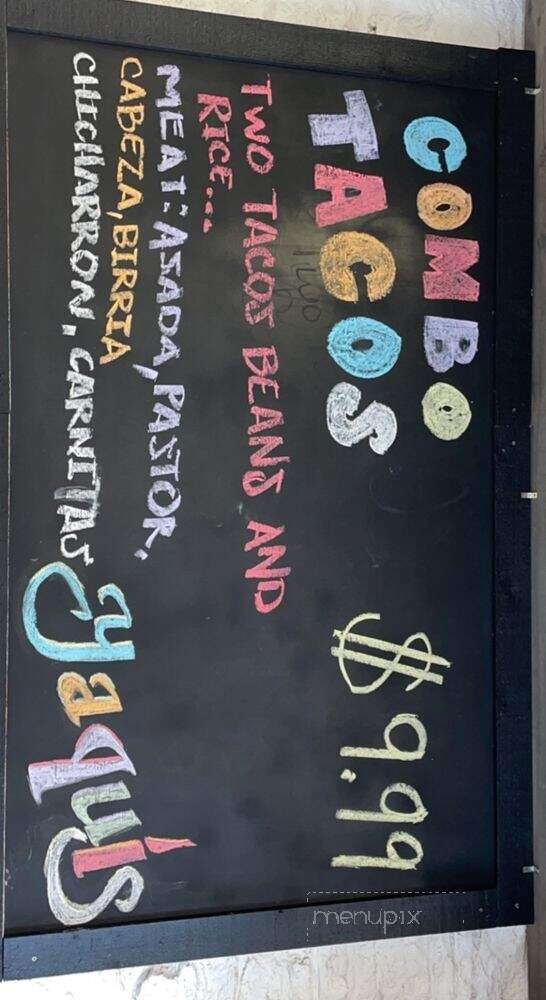 COMBO
TACOS
$9.99
TWO TACOS BEANS AND
RICE...
MEAT: ASADA, PASTOR,
CABEZA, BIRRIA
CHICHARRON, CARNITAS
yaquis
menupix